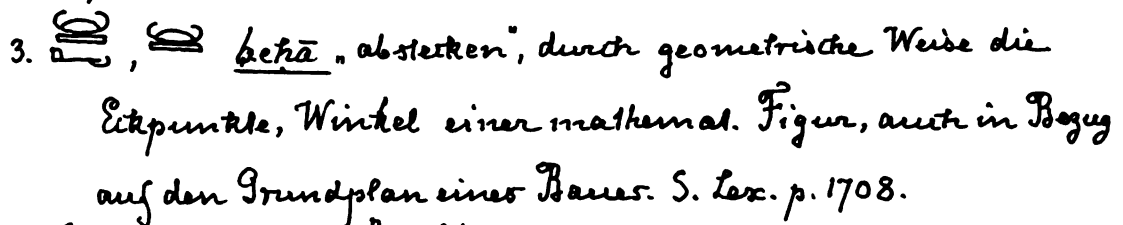 3. , behā „abstecken", durch geometrische Weise die
Eckpunkte, Winkel einer mathemat. Figur, auch in Bezug
auf den Grundplan eines Baues. S. Lex. p. 1708.